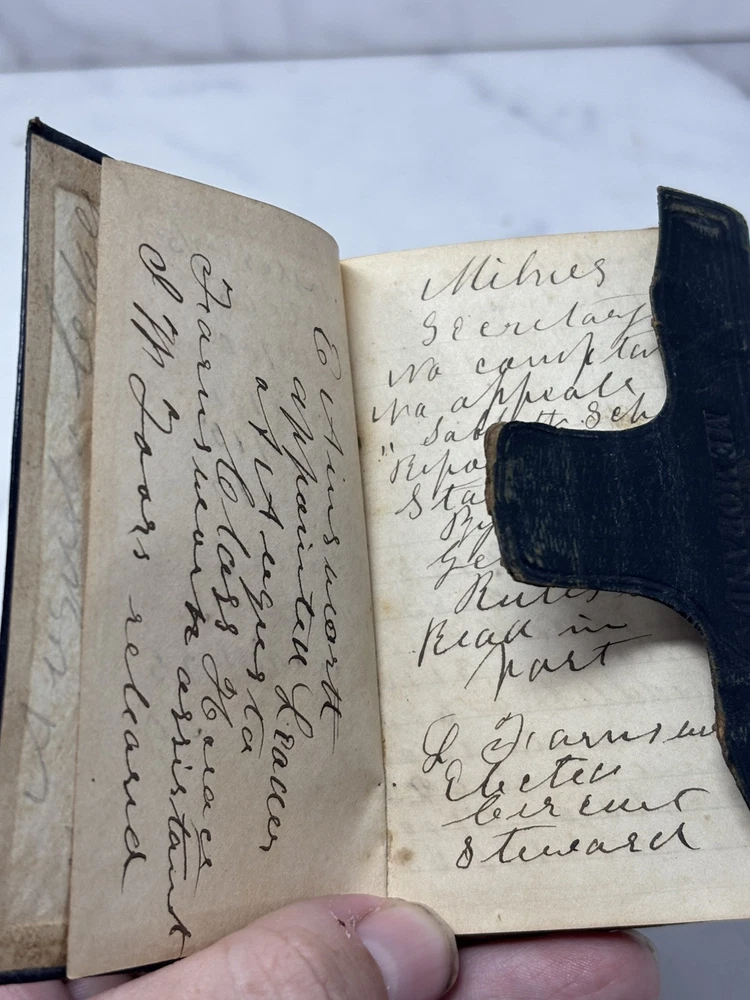 E Ainsworth
appointed Leader
at Augusta
Class Horace
Farnsworth assistant
S M Foors released
Milnes
Secretary
No
No appeals
" Sabbath Sch
Repo
Sta
By
Ge
Rules
Read in
part
L Farnswo
Elected
Circuit
Steward
MEMORANDUM